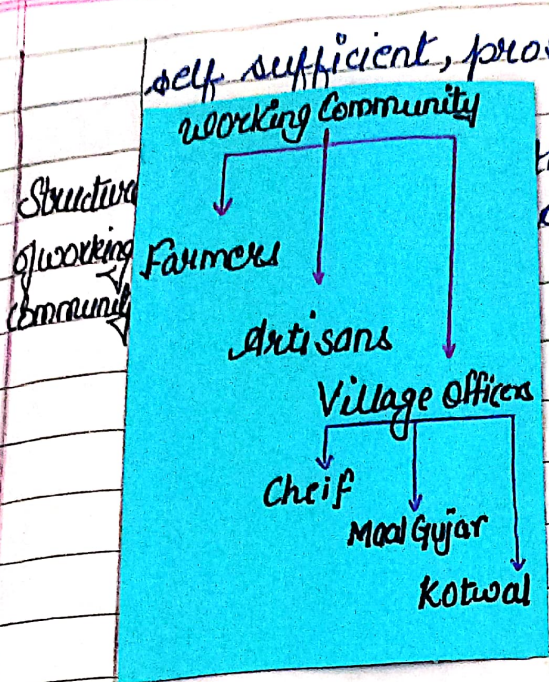 self sufficient, pro
Working Community
Structure
of working
Community
Farmers
Artisans
Village Officers
Cheif
Maal Gujar
Kotwal